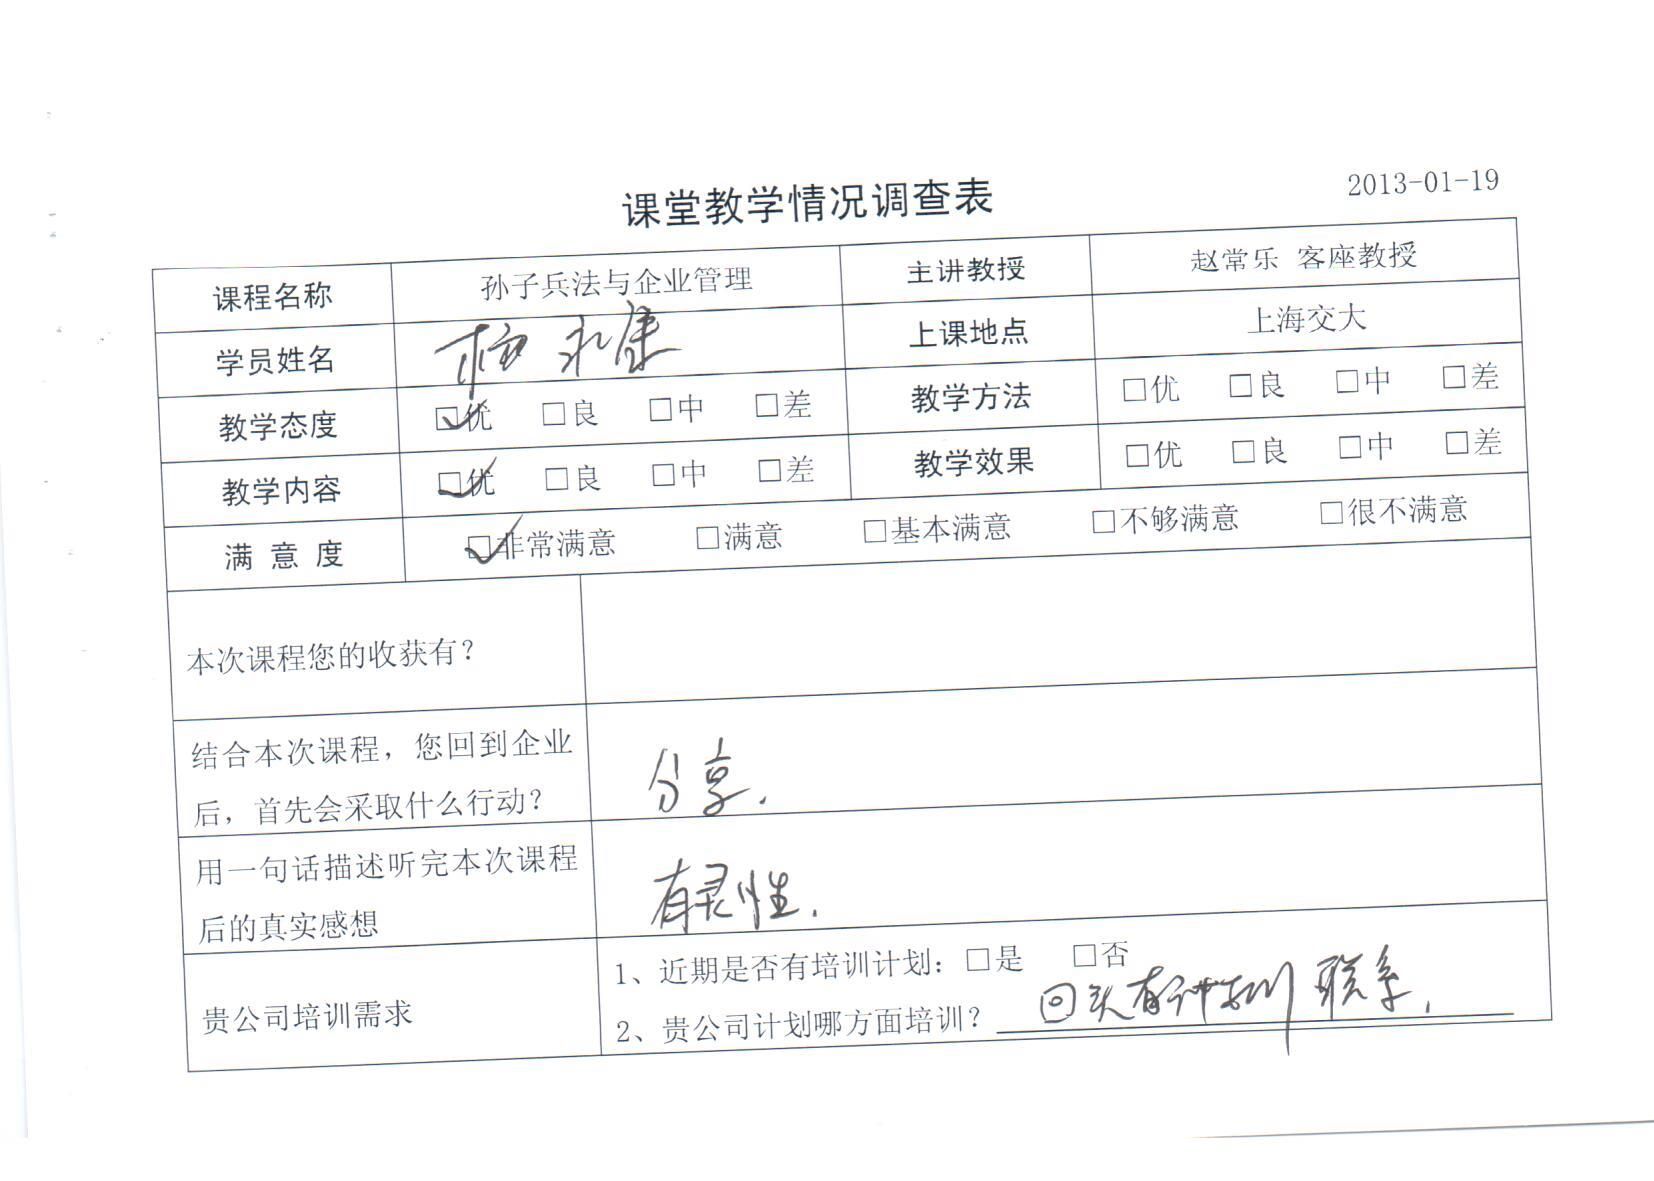 2013-01-19
课堂教学情况调查表
课程名称 孙子兵法与企业管理 主讲教授 赵常乐 客座教授
学员姓名 永康 上课地点 上海交大
教学态度 ☑优 □良 □中 □差 教学方法 □优 □良 □中 □差
教学内容 ☑优 □良 □中 □差 教学效果 □优 □良 □中 □差
满 意 度 ☑非常满意 □满意 □基本满意 □不够满意 □很不满意
本次课程您的收获有？
结合本次课程，您回到企业
后，首先会采取什么行动？
分享.
用一句话描述听完本次课程
后的真实感想
有灵性.
贵公司培训需求
1、近期是否有培训计划：□是 □否
2、贵公司计划哪方面培训？ 回头有 联系.